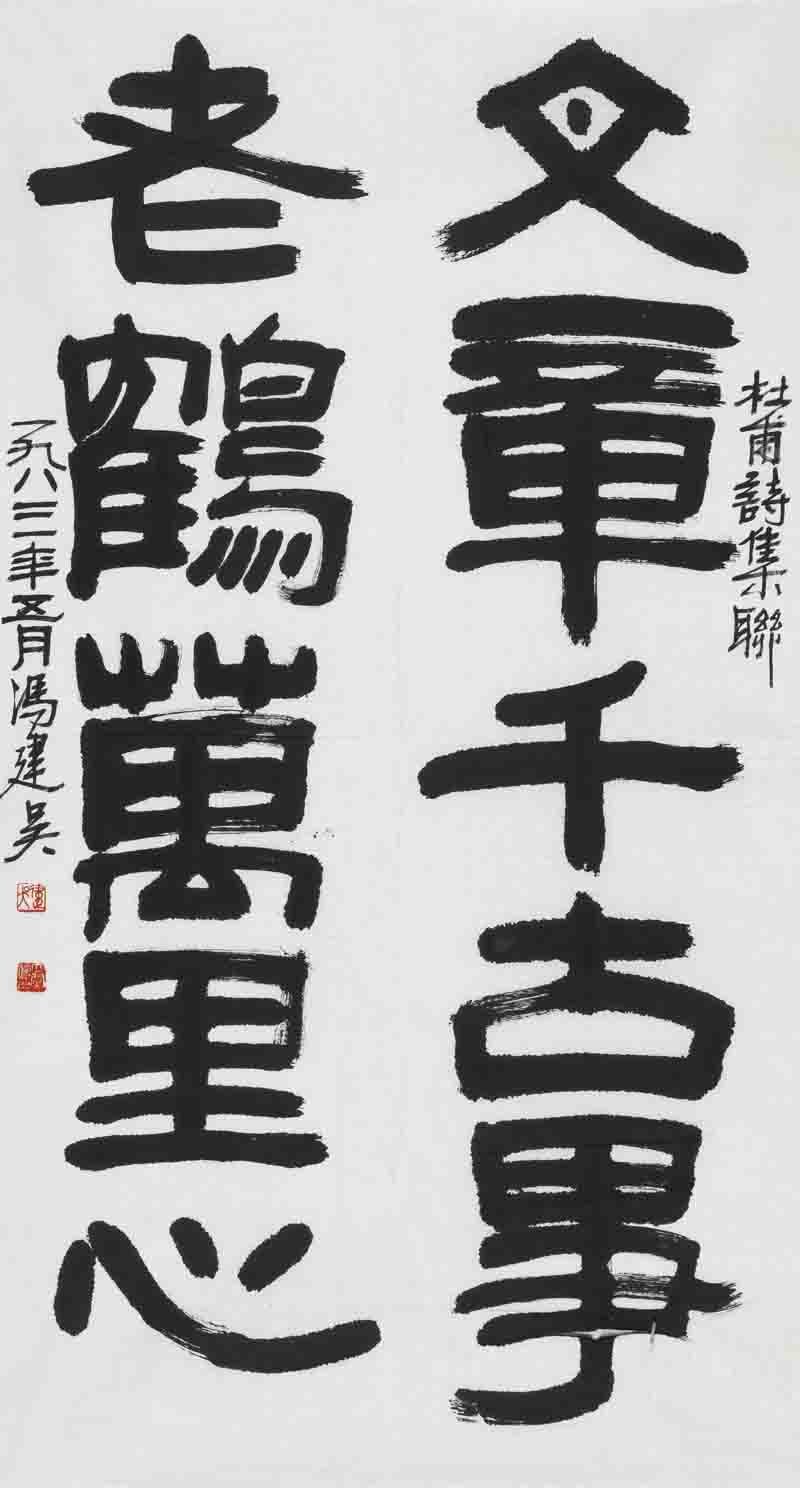 杜甫詩集聯
文章千古事
老鶴萬里心
一九八三年五月馮建吴